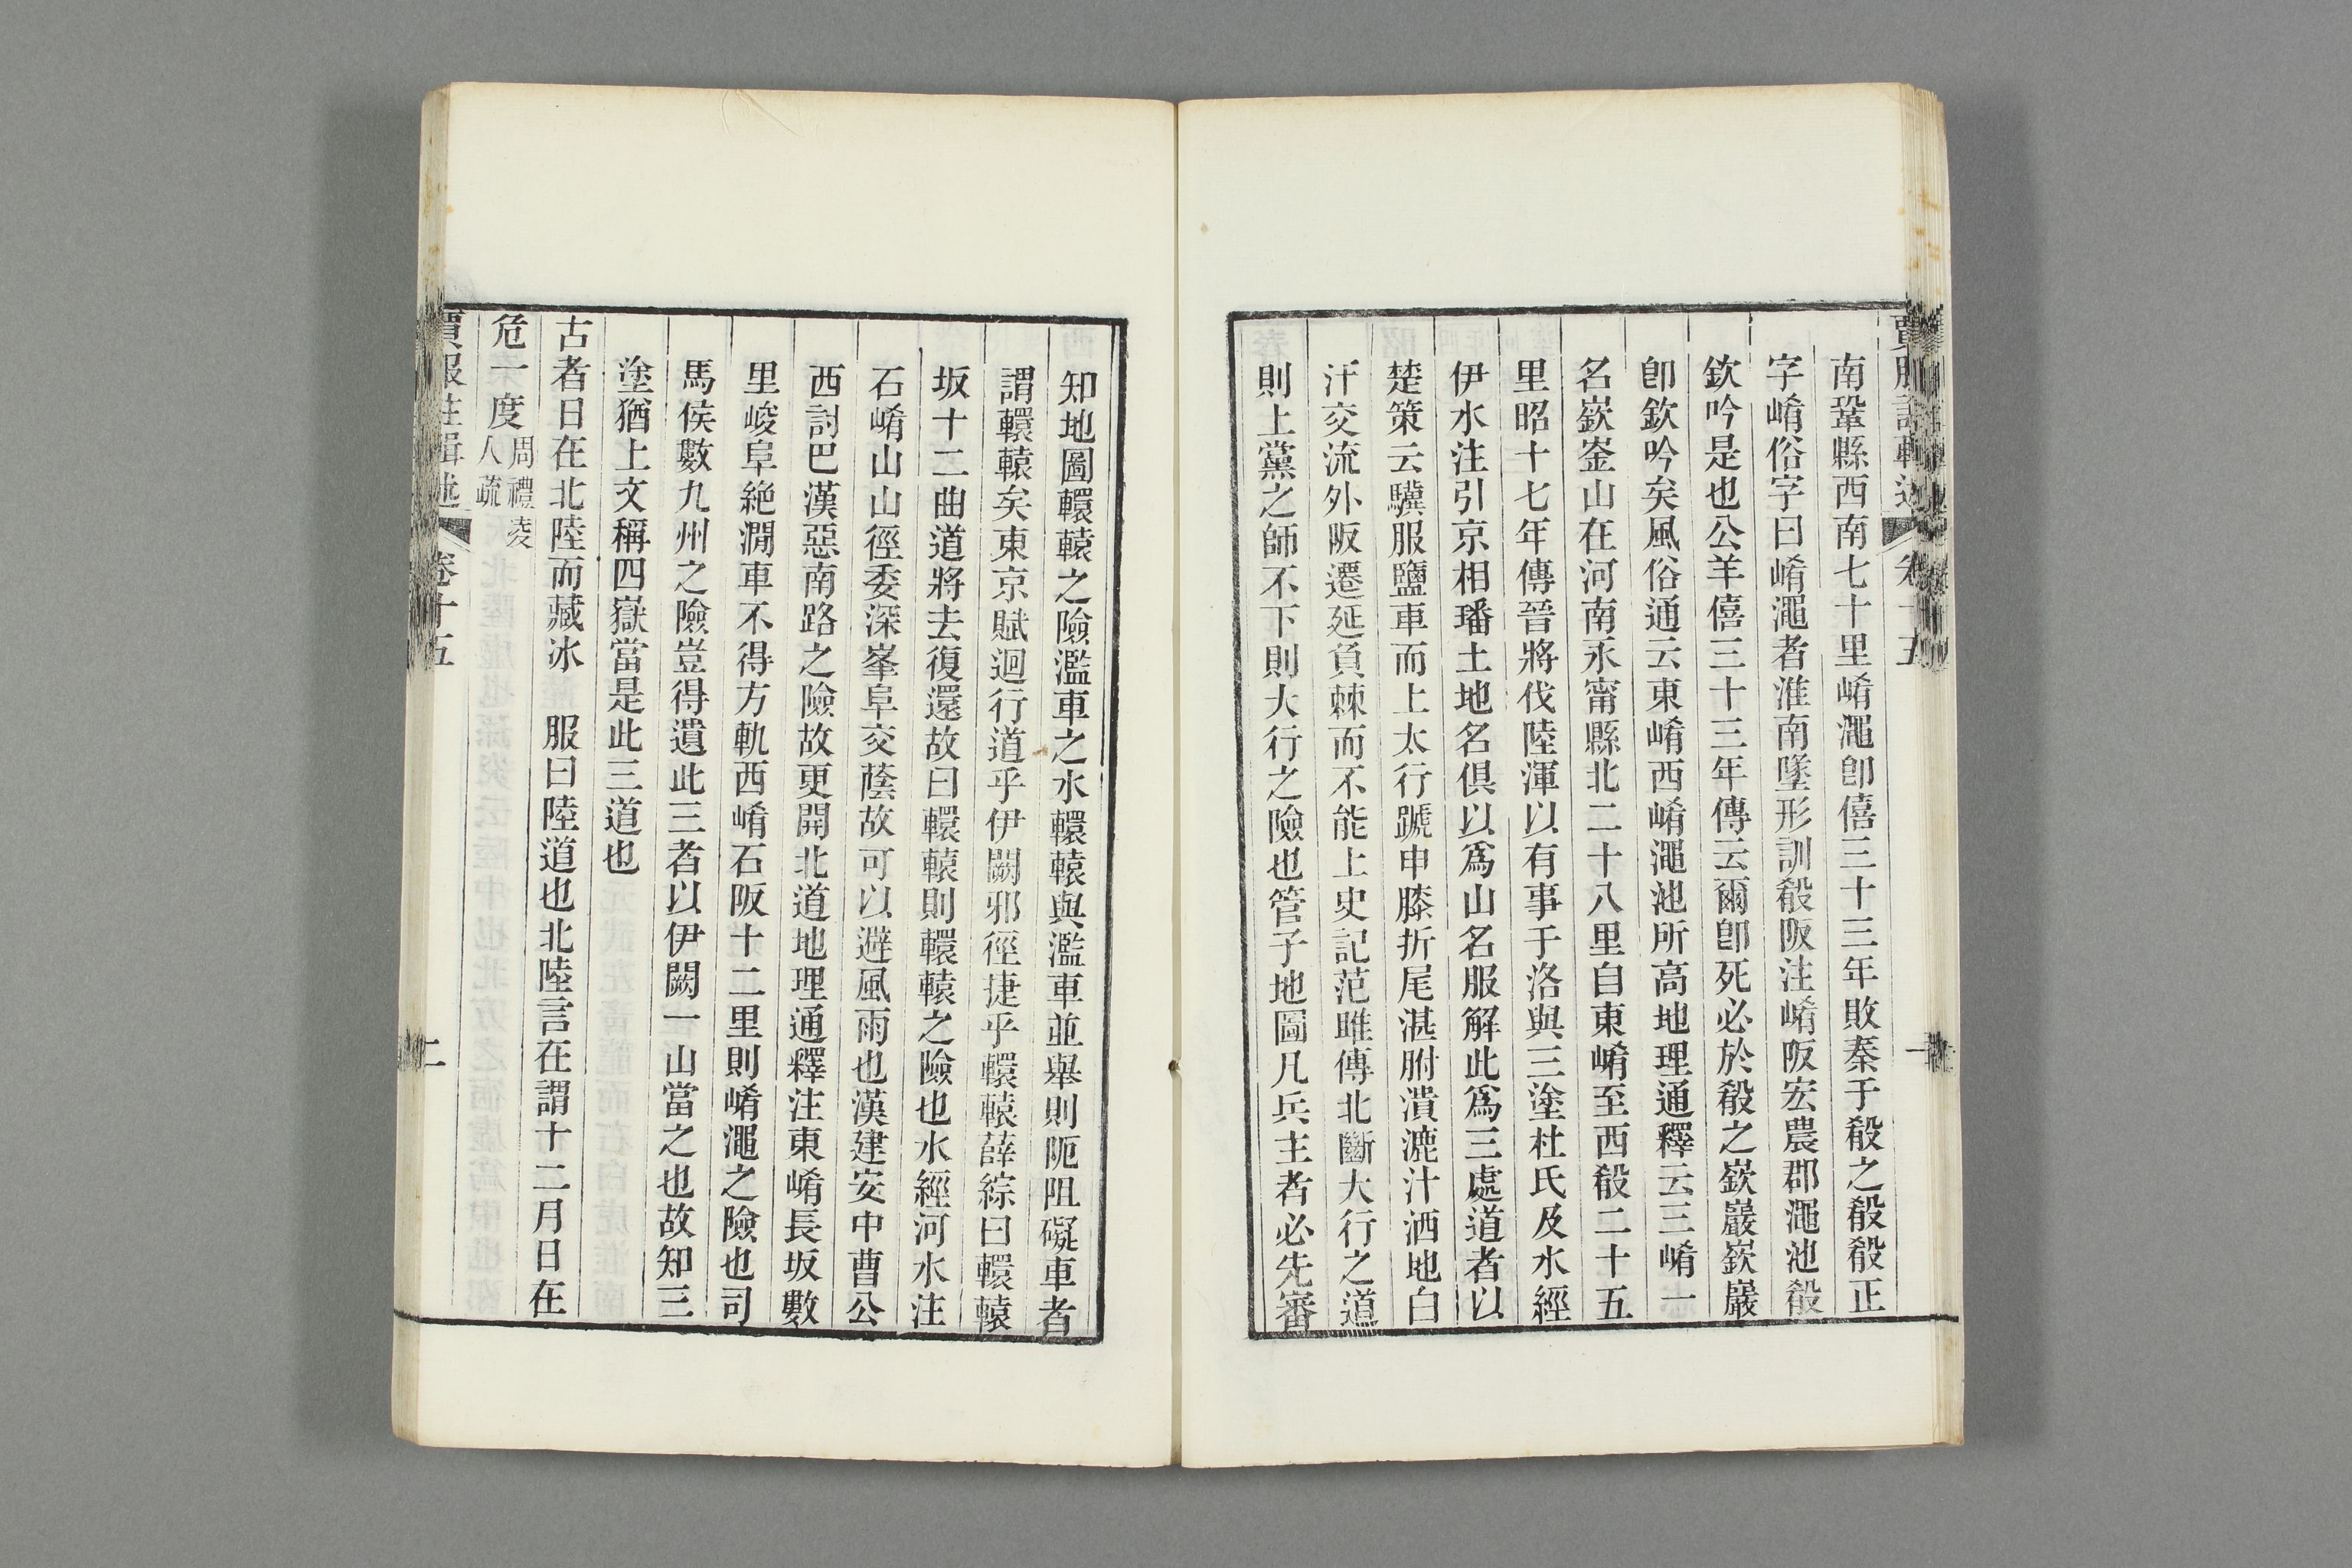 南鞏縣西南七十里崤澠卽僖三十三年敗秦于殽之殽殽正
字崤俗字曰崤澠者淮南墬形訓殽阪注崤阪宏農郡澠池殽
欽吟是也公羊僖三十三年傳云爾卽死必於殽之嶔巖嶔巖
卽欽吟矣風俗通云東崤西崤澠池所高地理通釋云三崤一
名嶔崟山在河南永甯縣北二十八里自東崤至西殽二十五
里昭十七年傳晉將伐陸渾以有事于洛與三塗杜氏及水經
伊水注引京相璠土地名俱以爲山名服解此爲三處道者以
楚策云驥服鹽車而上太行蹏申膝折尾湛胕潰漉汁洒地白
汗交流外阪遷延負棘而不能上史記范雎傳北斷大行之道
則上黨之師不下則大行之險也管子地圖凡兵主者必先審
知地圖轘轅之險濫車之水轘轅與濫車並舉則阨阻礙車者
謂轘轅矣東京賦迴行道乎伊闕邪徑捷乎轘轅薛綜曰轘轅
坂十二曲道將去復還故曰轘轅則轘轅之險也水經河水注
石崤山山徑委深峯阜交蔭故可以避風雨也漢建安中曹公
西討巴漢惡南路之險故更開北道地理通釋注東崤長坂數
里峻阜絶澗車不得方軌西崤石阪十二里則崤澠之險也司
馬侯數九州之險豈得遺此三者以伊闕一山當之也故知三
塗猶上文稱四嶽當是此三道也
古者日在北陸而藏冰 服曰陸道也北陸言在謂十二月日在
危一度周禮凌人疏
賈服注輯述 卷十五 二